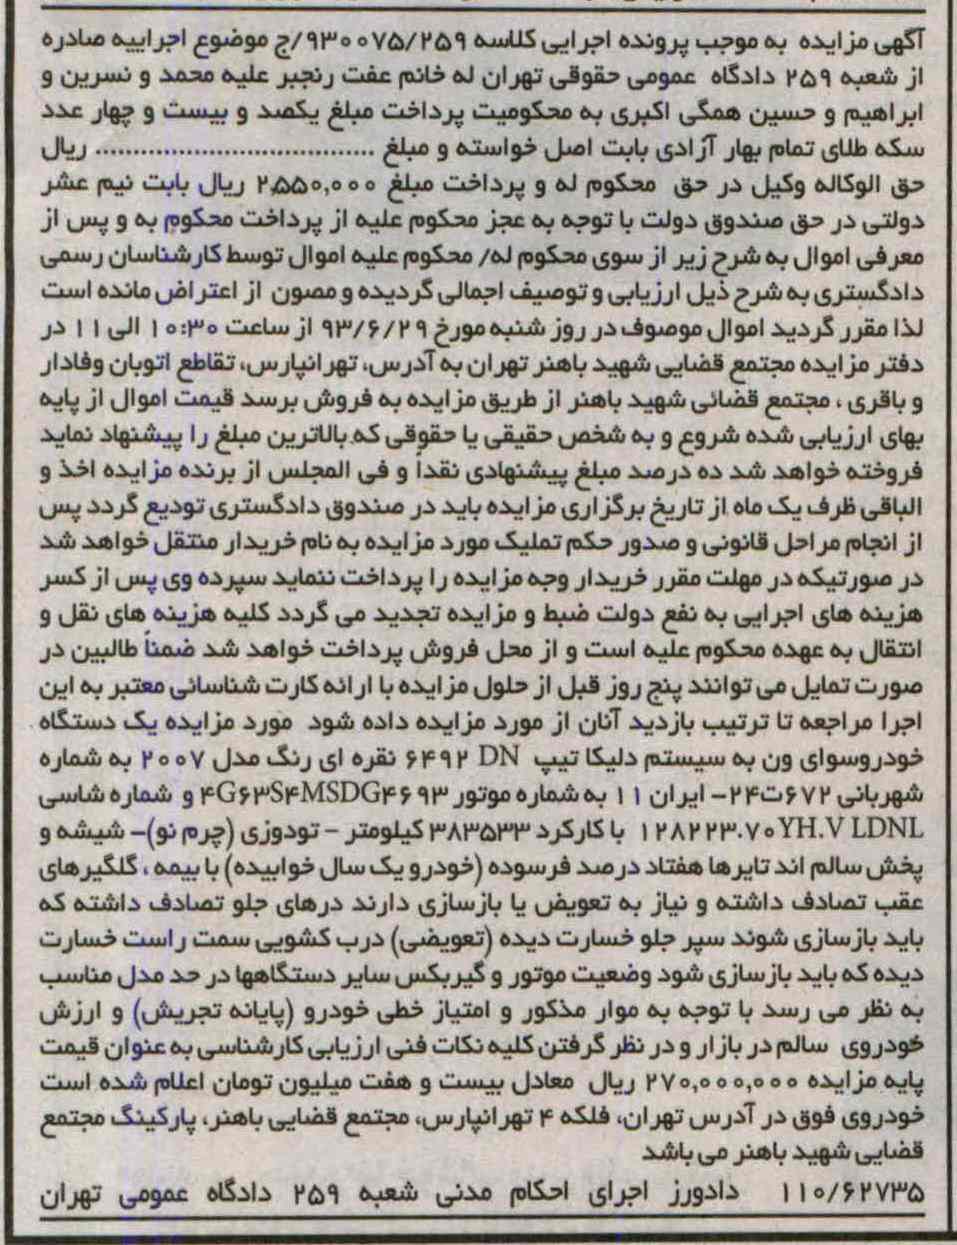 آگهی مزایده به موجب پرونده اجرایی کلاسه ۹۳۰۰۷۵/۲۵۹/ج موضوع اجراییه صادره
از شعبه ۲۵۹ دادگاه عمومی حقوقی تهران له خانم عفت رنجبر علیه محمد و نسرین و
ابراهیم و حسین همگی اکبری به محکومیت پرداخت مبلغ یکصد و بیست و چهار عدد
سکه طلای تمام بهار آزادی بابت اصل خواسته و مبلغ ..................................... ریال
حق الوکاله وکیل در حق محکوم له و پرداخت مبلغ ۲,۵۵۰,۰۰۰ ریال بابت نیم عشر
دولتی در حق صندوق دولت با توجه به عجز محکوم علیه از پرداخت محکوم به و پس از
معرفی اموال به شرح زیر از سوی محکوم له/ محکوم علیه اموال توسط کارشناسان رسمی
دادگستری به شرح ذیل ارزیابی و توصیف اجمالی گردیده و مصون از اعتراض مانده است
لذا مقرر گردید اموال موصوف در روز شنبه مورخ ۹۳/۶/۲۹ از ساعت ۱۰:۳۰ الی ۱۱ در
دفتر مزایده مجتمع قضایی شهید باهنر تهران به آدرس، تهرانپارس، تقاطع اتوبان وفادار
و باقری ، مجتمع قضائی شهید باهنر از طریق مزایده به فروش برسد قیمت اموال از پایه
بهای ارزیابی شده شروع و به شخص حقیقی یا حقوقی که بالاترین مبلغ را پیشنهاد نماید
فروخته خواهد شد ده درصد مبلغ پیشنهادی نقداً و فی المجلس از برنده مزایده اخذ و
الباقی ظرف یک ماه از تاریخ برگزاری مزایده باید در صندوق دادگستری تودیع گردد پس
از انجام مراحل قانونی و صدور حکم تملیک مورد مزایده به نام خریدار منتقل خواهد شد
در صورتیکه در مهلت مقرر خریدار وجه مزایده را پرداخت ننماید سپرده وی پس از کسر
هزینه های اجرایی به نفع دولت ضبط و مزایده تجدید می گردد کلیه هزینه های نقل و
انتقال به عهده محکوم علیه است و از محل فروش پرداخت خواهد شد ضمناً طالبین در
صورت تمایل می توانند پنج روز قبل از حلول مزایده با ارائه کارت شناسائی معتبر به این
اجرا مراجعه تا ترتیب بازدید آنان از مورد مزایده داده شود مورد مزایده یک دستگاه
خودروسوای ون به سیستم دلیکا تیپ DN ۶۴۹۲ نقره ای رنگ مدل ۲۰۰۷ به شماره
شهربانی ۶۷۲ت۲۴- ایران ۱۱ به شماره موتور ۴G۶۳S۴MSDG۴۶۹۳ و شماره شاسی
۱۲۸۲۲۳.۷۰YH.V LDNL با کارکرد ۳۸۳۵۳۳ کیلومتر - تودوزی (چرم نو)- شیشه و
پخش سالم اند تایرها هفتاد درصد فرسوده (خودرو یک سال خوابیده) با بیمه ، گلگیرهای
عقب تصادف داشته و نیاز به تعویض یا بازسازی دارند درهای جلو تصادف داشته که
باید بازسازی شوند سپر جلو خسارت دیده (تعویضی) درب کشویی سمت راست خسارت
دیده که باید بازسازی شود وضعیت موتور و گیربکس سایر دستگاهها در حد مدل مناسب
به نظر می رسد با توجه به موار مذکور و امتیاز خطی خودرو (پایانه تجریش) و ارزش
خودروی سالم در بازار و در نظر گرفتن کلیه نکات فنی ارزیابی کارشناسی به عنوان قیمت
پایه مزایده ۲۷۰,۰۰۰,۰۰۰ ریال معادل بیست و هفت میلیون تومان اعلام شده است
خودروی فوق در آدرس تهران، فلکه ۴ تهرانپارس، مجتمع قضایی باهنر، پارکینگ مجتمع
قضایی شهید باهنر می باشد
۱۱۰/۶۲۷۳۵ دادورز اجرای احکام مدنی شعبه ۲۵۹ دادگاه عمومی تهران